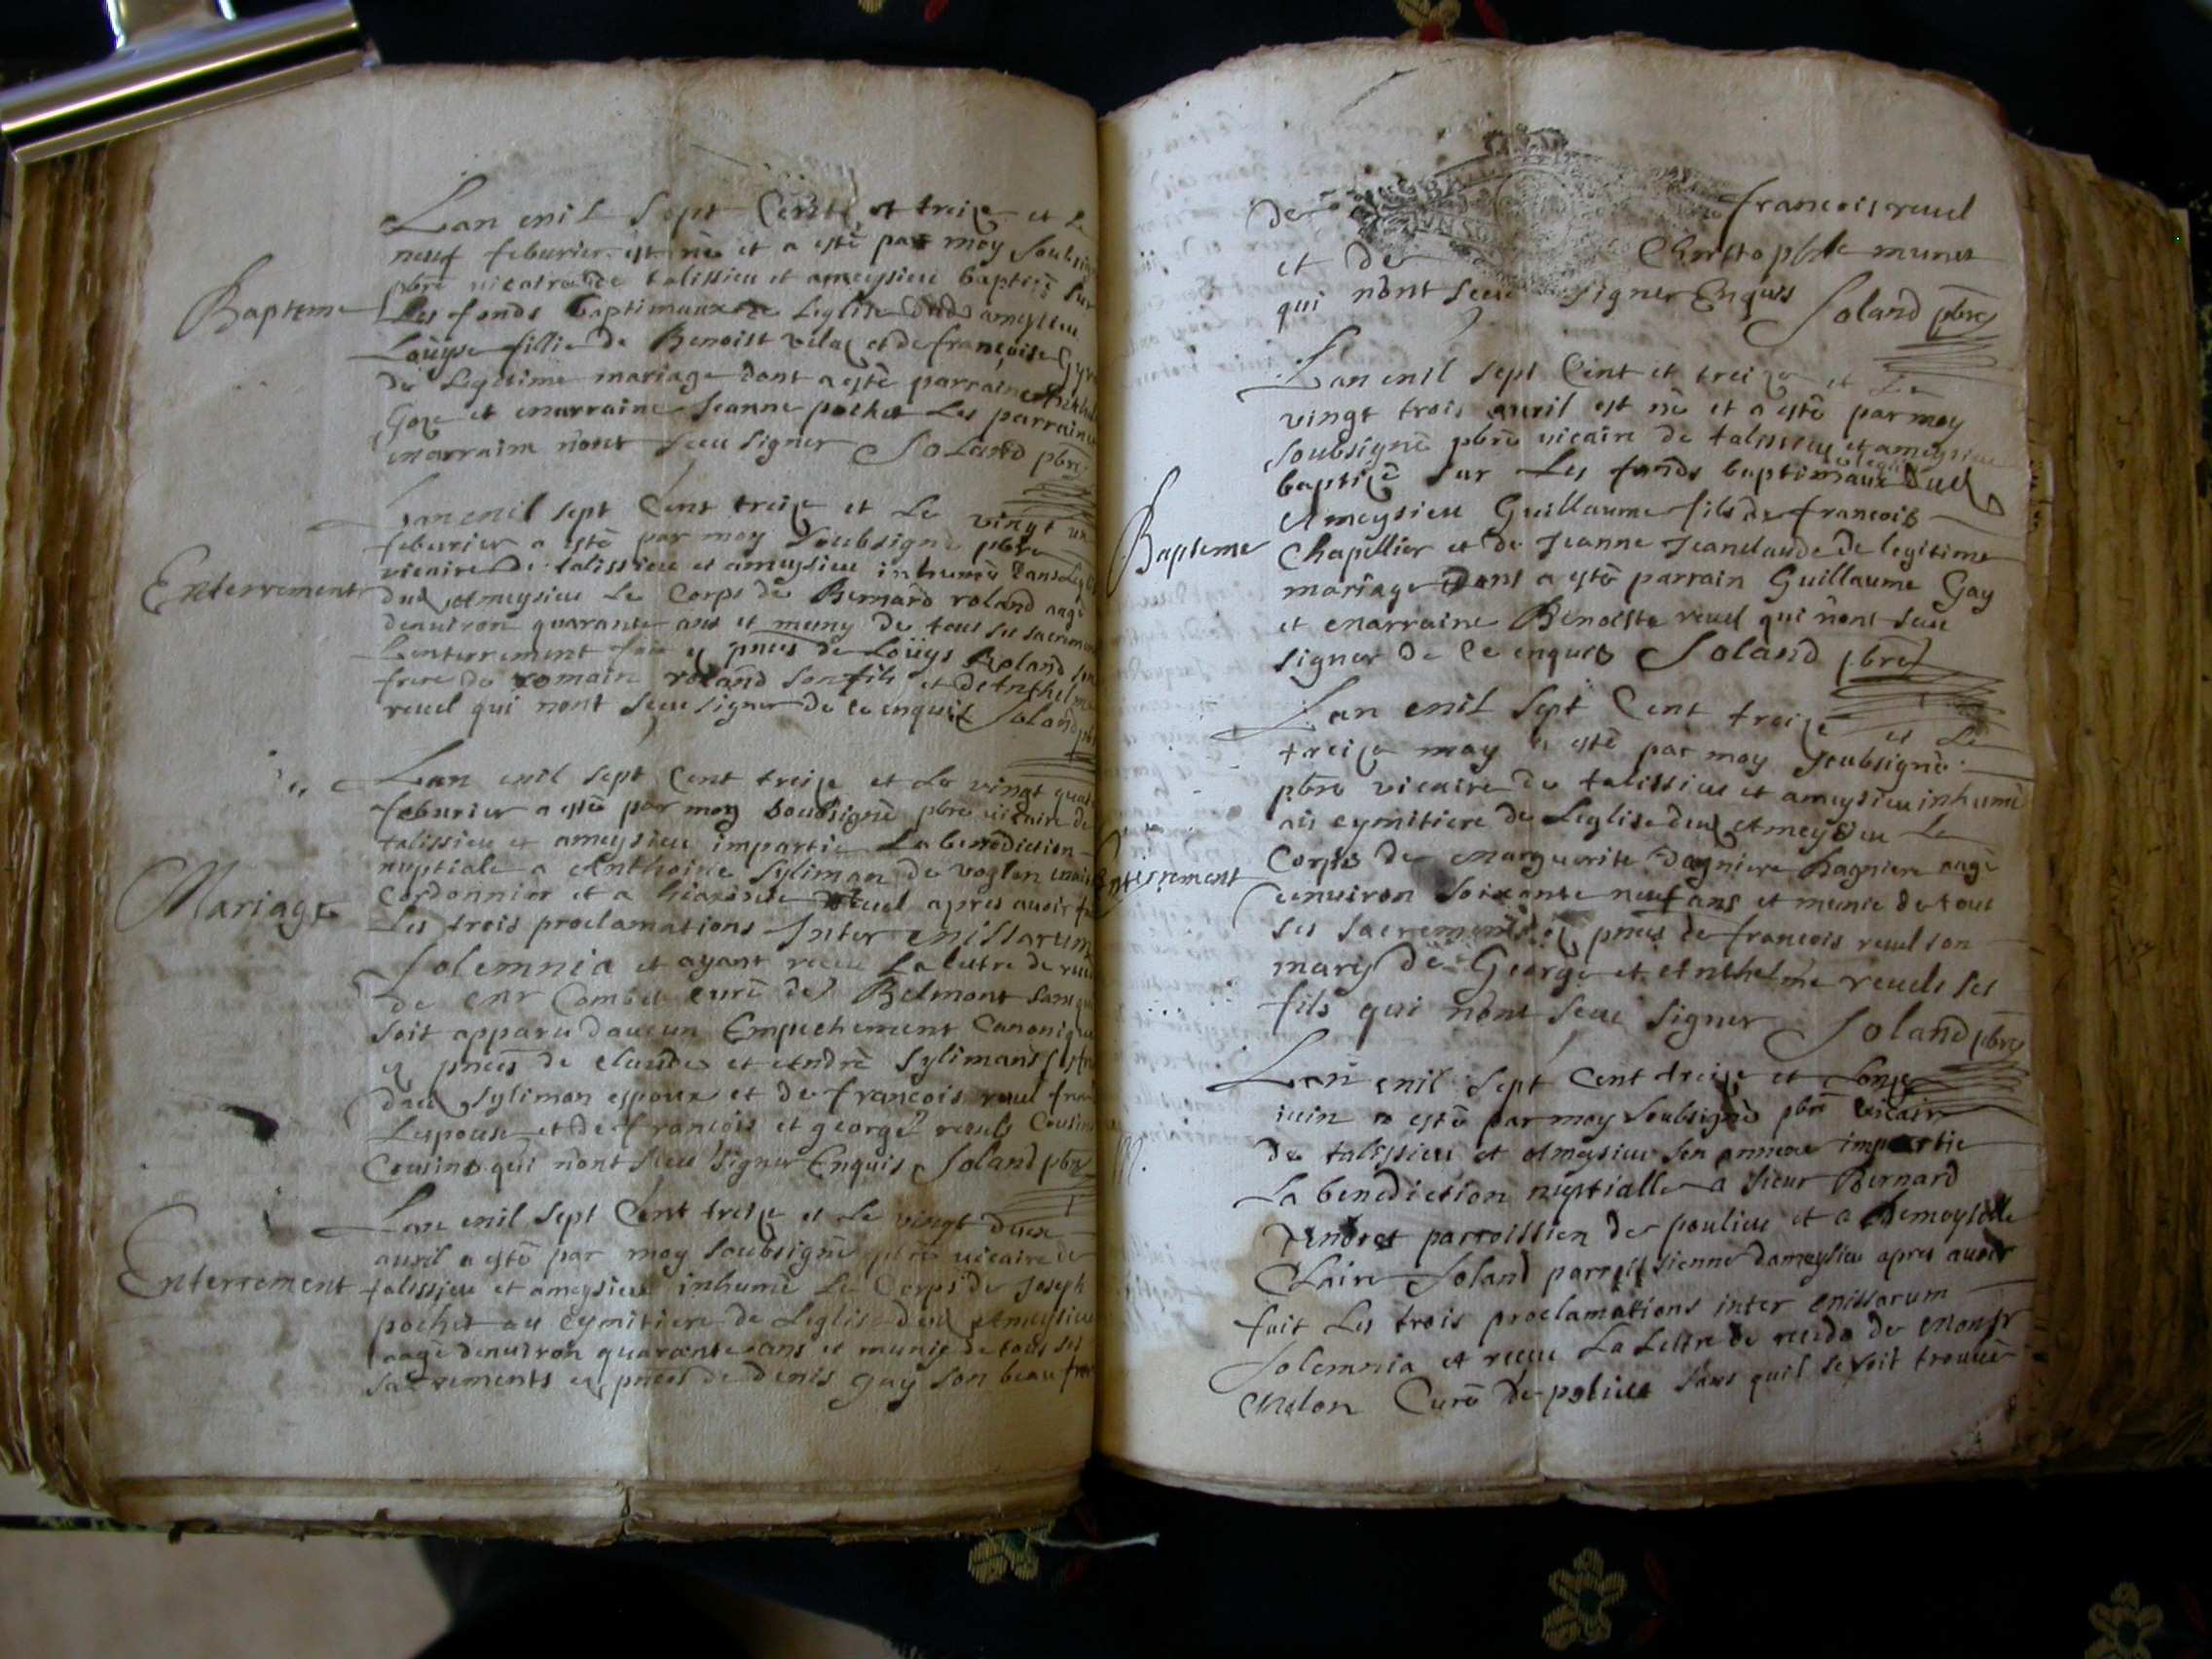 Lan mil sept Cent et treize et le
neuf feburier est né et a esté par moy Soubsigné
pbre vicaire de talissieu et ameysieu baptisé sur
Bapteme
Les fonds baptimaux de Leglise dud ameysieu
Loüyse fillie de Benoist vela et de francoise
de Legitime mariage dont a esté parrain
Goze et marraine Jeanne pochet Les parrain
marraine nont sceu signer Soland pbre
Lan mil sept Cent treize et Le vingt un
feburier a esté par moy Soubsigné pbre
vicaire de talissieu et ameysieu inhumé dans Leglise
Enterrement
dud Ameysieu Le Corps de Bernard roland aagé
denuiron quarante ans et muny de tous ses sacremens
Lenterrement fait es pnces de Loüys Roland son
frere de romain roland son fils et de Anthelme
reuel qui nont sceu signer de ce enquis Soland pbre
Lan mil sept Cent treize et Le vingt quatre
feburier a esté par moy soubsigné pbre vicaire de
talissieu et ameysieu impartie La benediction
nuptiale a Anthoine Syliman de voglan
Mariage
Cordonnier et a reuel apres auoir fait
Les trois proclamations Inter missarum
Solemnia et ayant receu La lettre de
de mr Combet curé de Belmont sans que
soit apparu daucun Empechement Canonique
es pnces de claude et André Sylimans
dud Syliman espoux et de francois reuel frere
Lespouse et de francois et george reuels Cousins
Cousins qui nont sceu signer Enquis Soland pbre
Lan mil sept Cent treize et Le vingt deux
auril a esté par moy soubsigné pbre vicaire de
Enterrement
talissieu et ameysieu inhumé Le Corps de Joseph
pochet au cymitiere de Leglise dud Ameysieu
aagé denuiron quarante ans et munie de tous ses
sacrements es pnces de denis guy son beau frere
de francois reuel
et de Christophle munet
qui nont sceu signer Enquis Soland pbre
Lan mil sept Cent et treize et Le
vingt trois auril est né et a esté par moy
soubsigné pbre vicaire de talissieu et ameysieu
baptizé sur Les fonds baptimaux de leglise dud
Ameysieu Guillaume fils de francois
Bapteme
Chapellier et de Jeanne Jeanclaude de legitime
mariage Dont a esté parrain Guillaume Gay
et marraine Benoiste reuel qui nont sceu
signer de ce enquis Soland pbre
Lan mil sept Cent treize et Le
treize may a esté par moy soubsigné
pbre vicaire de talissieu et ameysieu inhumé
au cymitiere de Leglise dud Ameysieu Le
Corps de marguerite dagniere aagé
Enterrement
denuiron soixante neuf ans et munie de tous
ses sacrements es pnces de francois reuel son
mary de George et Anthelme reuels ses
fils qui nont sceu signer Soland pbre
Lan mil sept Cent treize et Lonze
iuin a esté par moy Soubsigné pbre vicaire
de talissieu et Ameysieu son annexe impartie
La benediction nuptialle a sieur Bernard
parroissien de poulieu et a demoyselle
Claire Soland parroissienne dameysieu apres auoir
fait Les trois proclamations inter missarum
Solemnia et receu La Lettre de recedo de Monsr
Melon Curé de polieu sans quil se soit trouué